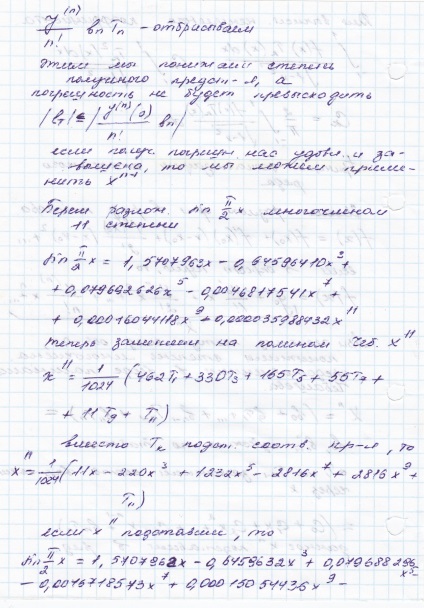 y⁽ⁿ⁾/n! bₙTₙ - отбрасываем
этим мы понижаем степень
получного предст-я, а
погрешность не будет превосходить
|b_T| ≤ |y⁽ⁿ⁾(0)/n! bₙ|
если получ. погрешн нас удовл. и за-
вышена, то мы можем приме-
нить xⁿ⁻¹
Берем разлож. sin π/2 x многочленом
11 степени
sin π/2 x = 1,5707963x - 0,64596410x³ +
+ 0,079692626x⁵ - 0,0046817541x⁷ +
+ 0,00016044118x⁹ - 0,0000035988432x¹¹
теперь заменяем на полином Чеб. x¹¹
x¹¹ = 1/1024 (462T₁ + 330T₃ + 165T₅ + 55T₇ +
+ 11T₉ + T₁₁)
вместо Tₖ подст. соотв. пр-я, то
x¹¹ = 1/1024 (11x - 220x³ + 1232x⁵ - 2816x⁷ + 2816x⁹ +
T₁₁)
если x¹¹ подставим, то
sin π/2 x = 1,5707962x - 0,6459632x³ + 0,079688296x⁵ -
- 0,0046718573x⁷ + 0,00015054436x⁹ -